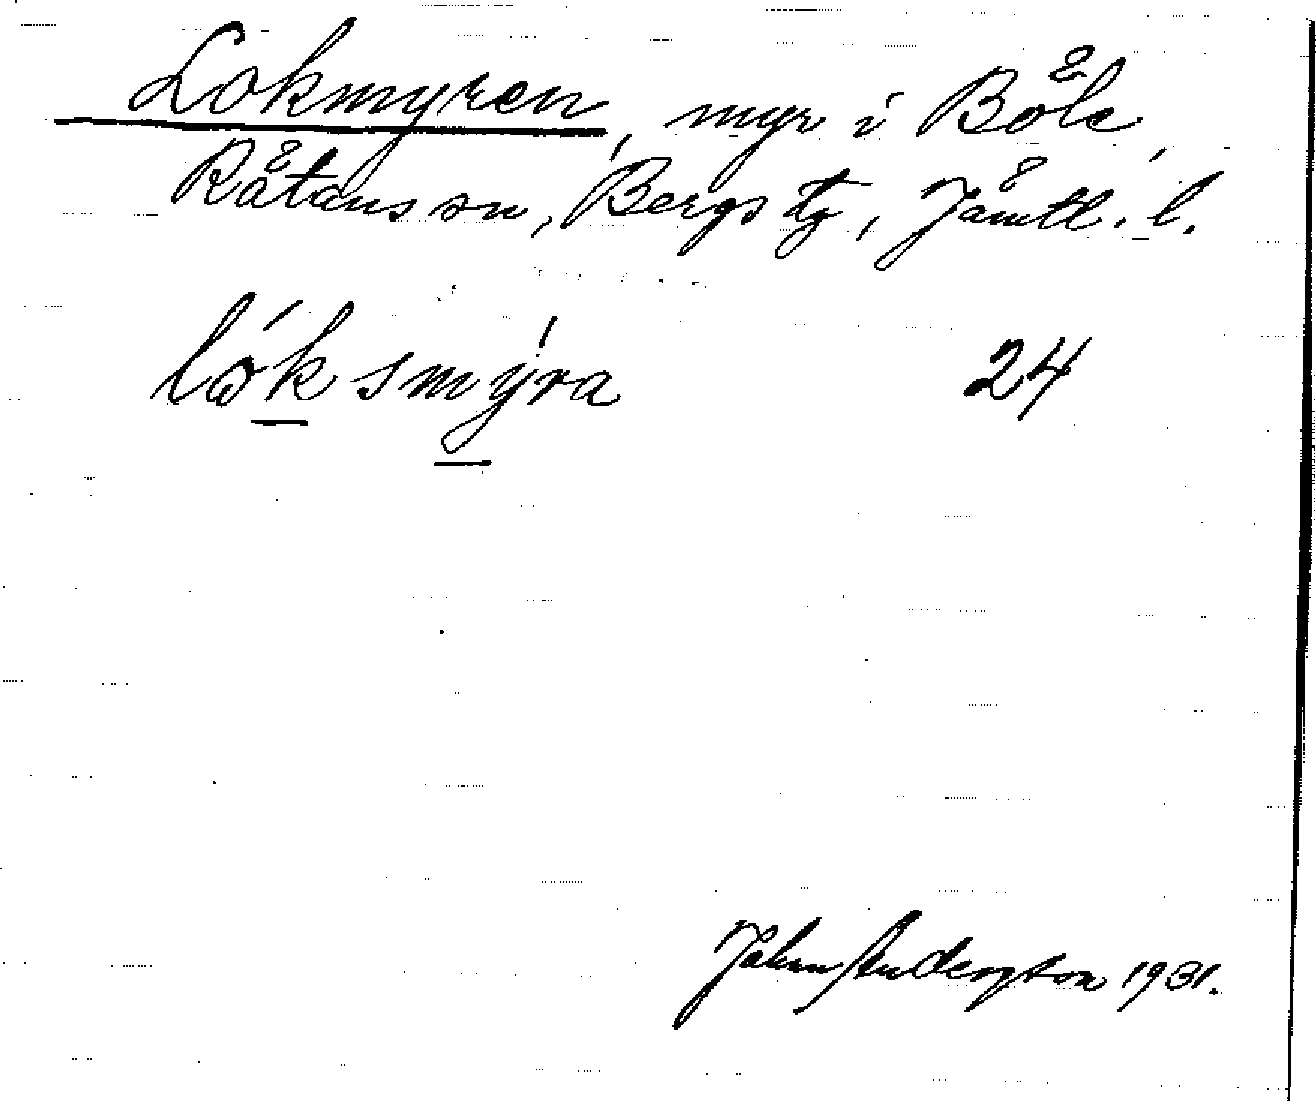 Lokmyren, myr i Böle,
Råtans sn, Bergs tg, Jämtl. l.
lóksmýra 24
John Anderzson 1931.